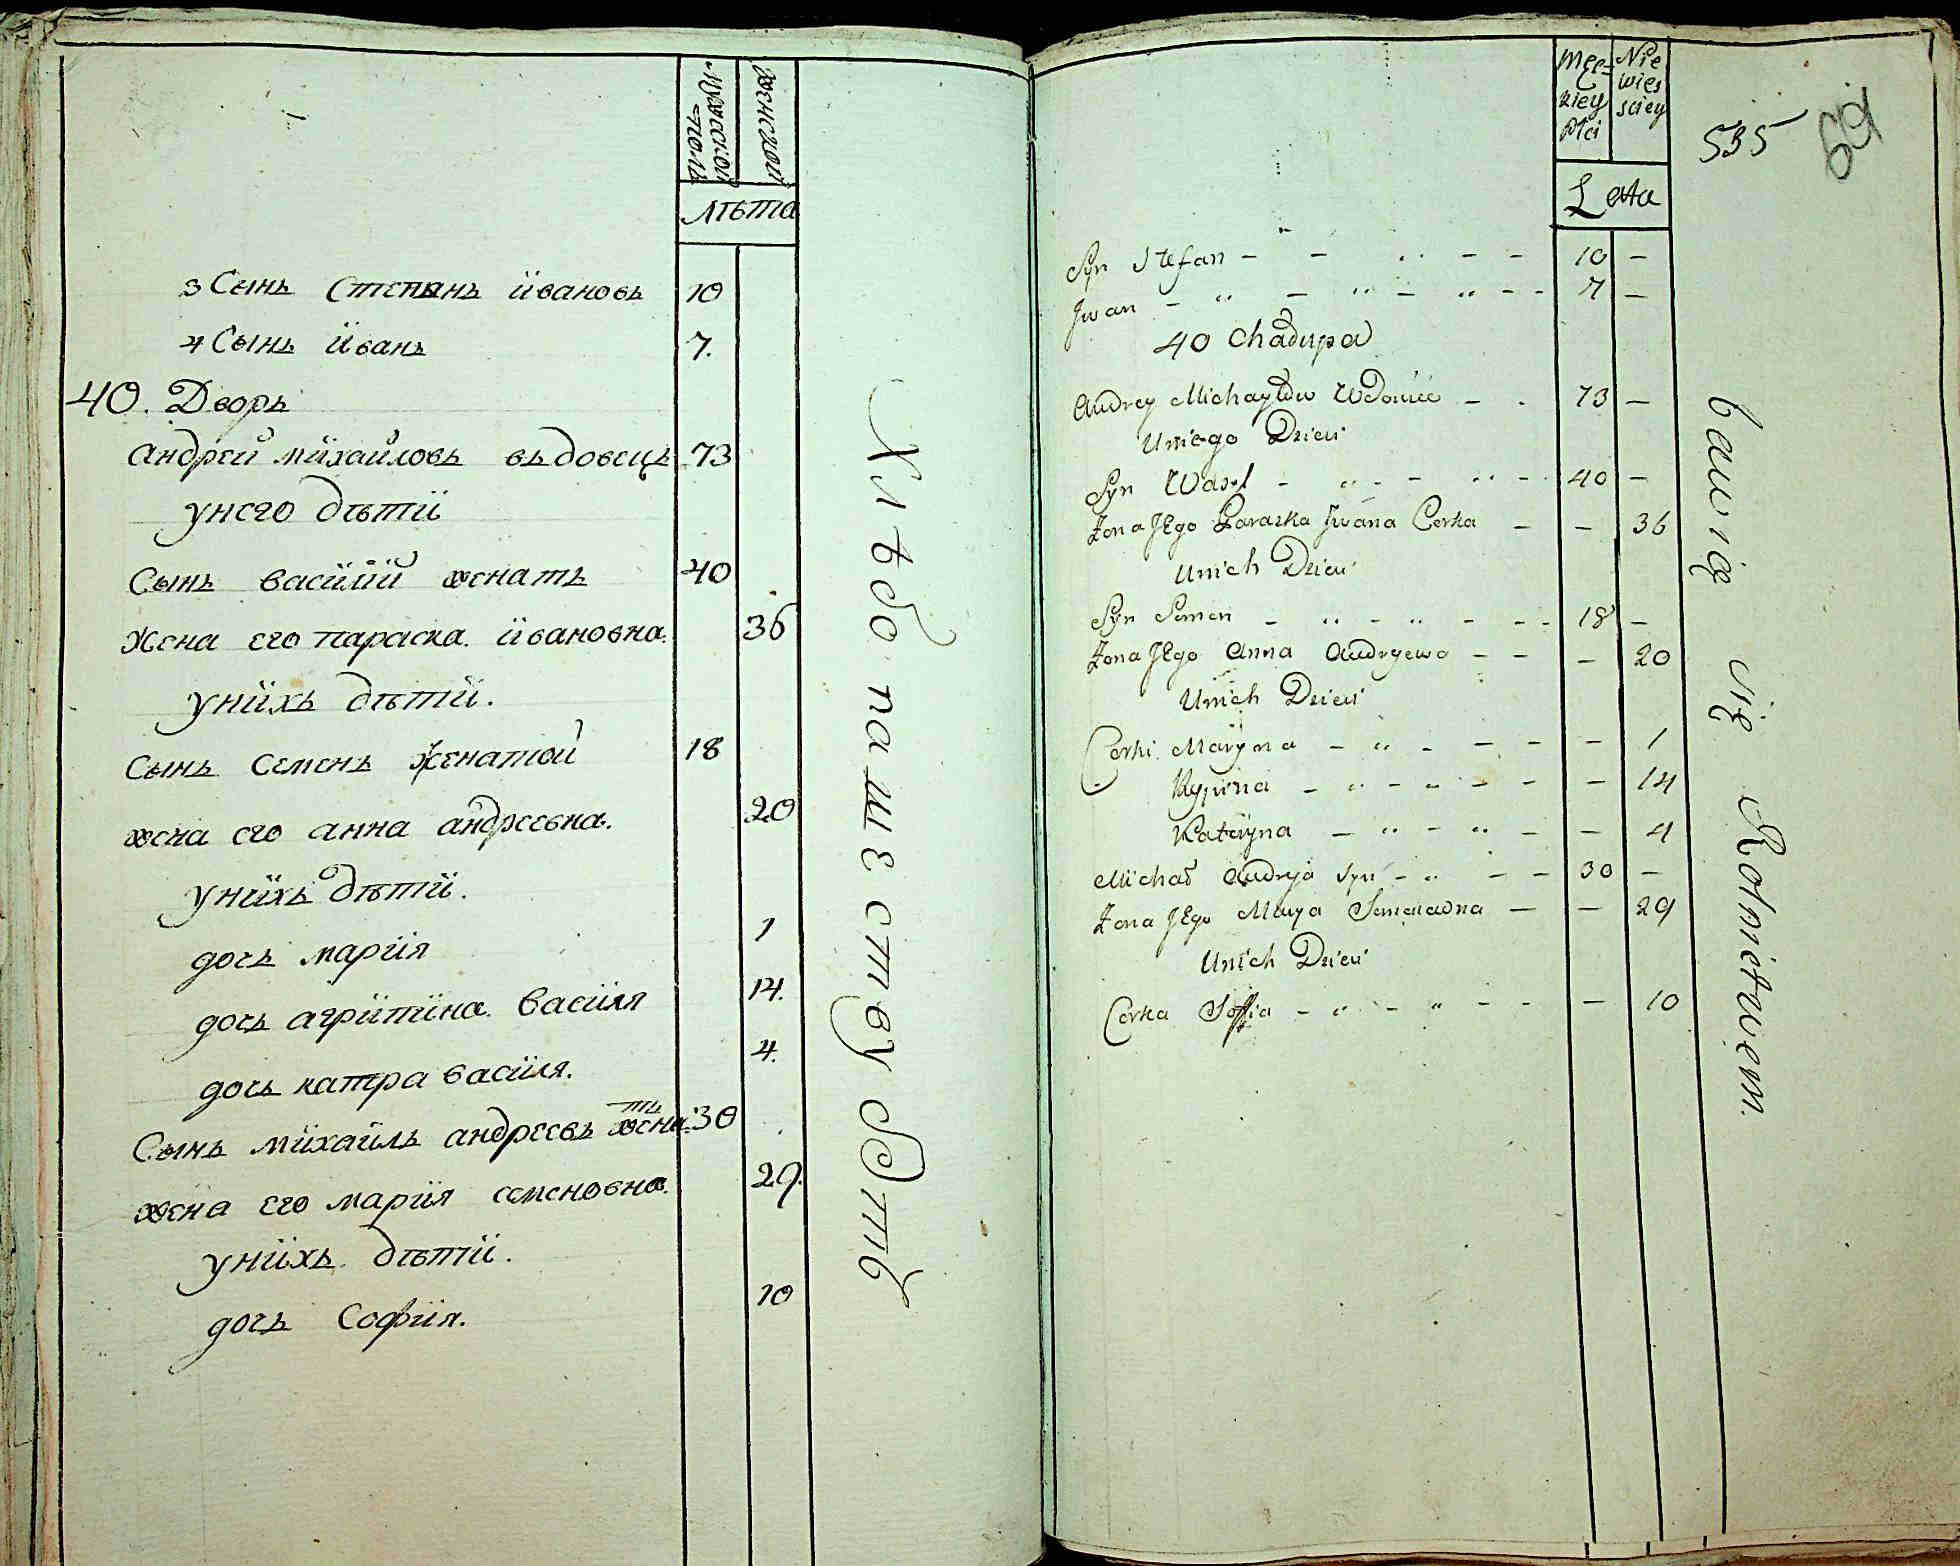 Мужской
полъ
женской
лѣта
3 Сынъ Степанъ ӥвановъ 10
4 Сынъ ӥванъ 7.
40. Дворъ
андрей мӥхайловъ въдовецъ 73
унего дѣтӥ
Сынъ васӥлӥй женатъ 40
жена его параска ӥвановна. 36
унӥхъ дѣтӥ.
Сынъ семенъ женатой 18
жена его анна андреевна. 20
унӥхъ дѣтӥ.
дочь марӥя 1
дочь агрӥпӥна васӥля 14.
дочь катра васӥля. 4.
Сынъ мӥхайлъ андреевъ женатъ 30
жена его марӥя семеновна. 29.
унӥхъ дѣтӥ.
дочь Софӥя. 10
Хлѣбопашеству
Męz=
kiey
Płci
Nie
wies
sciey
Lata
535
69
Syn Stefan - - - - - 10 -
Jwan - - - - - 7 -
40 Chałupa
Andrey Michayłów Wdowiec - 73 -
Uniego Dzieci
Syn Wasyl - - - - 40 -
Żona JEgo Paraska Jwana Corka - - 36
Unich Dzieci
Syn Semen - - - - 18 -
Żona JEgo Anna Andryewa - - - 20
Unich Dzieci
Corki Maryna - - - - - 1
Kateryna - - - - - 4
Michał Andrya Syn - - - 30 -
Żona JEgo Marya Semenowna - - 29
Unich Dzieci
Corka Soffia - - - - - 10
bawią się Rolnictwem.